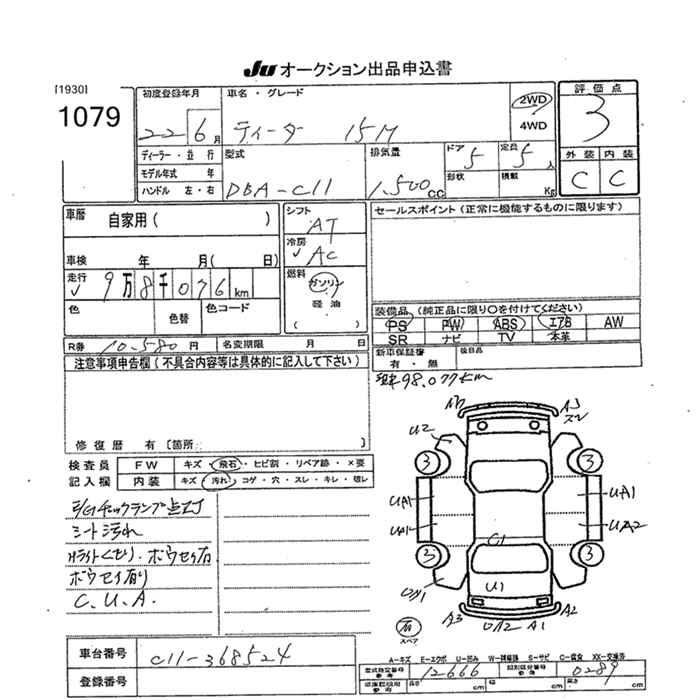 JU オークション出品申込書
[1930]
1079
初度登録年月
車名・グレード
22 6月
ティーダ 15M
2WD
4WD
評価点
3
外装 内装
C C
ディーラー・並行
モデル年式 年
ハンドル 左・右
型式
DBA-C11
排気量
1.500cc
ドア 5
定員 5人
形状
積載 Kg
車歴
自家用( )
シフト
AT
冷房
AC
燃料
ガソリン
軽油
( )
車検 年 月( 日)
走行
9万8千076km
色
色替
色コード
R券 10.580円
名変期限 月 日
セールスポイント(正常に機能するものに限ります)
装備品(純正品に限り○を付けてください)
PS PW ABS エアB AW
SR ナビ TV 本革
新車保証書
有・無
後日品
注意事項申告欄(不具合内容等は具体的に記入して下さい)
98.077km
修復歴 有[箇所: ]
検査員
記入欄
FW キズ・飛石・ヒビ割・リペア跡・×要
内装 キズ・汚れ・コゲ・穴・スレ・キレ・破レ
E/Gチェックランプ点灯
シート汚れ
Hライトくもり. ボウセイ右
ボウセイ有り
C. U. A.
A3
スレ
U2
3 3
UA1 UA1
UA1 UA2
C1
3 3
U1
A3 A1 A2
右
スペア
車台番号 C11-368524
登録番号
A-キズ E-エクボ U-凹み W-補修跡 S-サビ C-腐食 XX-交換済
型式指定番号 12666
類別区分番号 0289
長さ cm
幅 cm
高さ cm